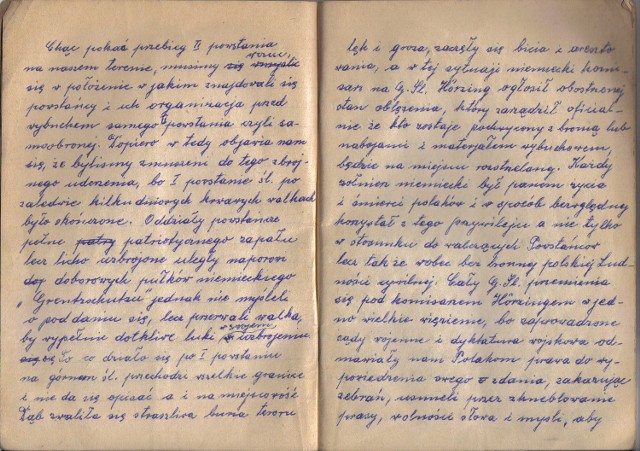 Chąc pokać przebieg II powstania
na naszem terenie, musimy się wczuć,
się w położenie w jakim znajdowali się
powstańcy i ich organizacja przed
wybuchem samego II powstania czyli sa-
moobronej. Dopiero w tedy objawia nam
się, że byliśmy zmuszeni do tego zbroj-
nego uderzenia, bo I powstanie śl. po
zaledwie kilku dniowych krwawych walkach
było skończone. Oddziały powstańcze
pełne patriotycznego zapału
lecz licho uzbrojone uległy naporowi
doborowych pułków niemieckiego
„Grentzschutzu jednak nie myśleli
o pod daniu się, lecz przerwali walkę,
by wypełnić dotkliwe luki w swojem uzbrojeniu.
To co działo się po I powstaniu
na górnem śl. przechodzi wszelkie granice
i nie da się opisać a i na miejscowość
Dąb zwaliła się straszliwa burza teroru
lęk i groza, zaczęły się bicia i areszto
wania, a w tej sytuacji niemiecki komi-
sarz na G. Śl. Hörzing ogłosił obostrzony
stan oblężenia, który zarządził oficial-
nie że kto zostaje podchwycony z bronią lub
nabojami i materjałem wybuchowem,
będzie na miejscu rozstrzelany. Każdy
żołnierz niemiecki był panem życia
i śmierci polaków i w sposób bezwzględny
korzystał z tego przywileju a nie tylko
w stosunku do walczących Powstańców
lecz tak że wobec bez bronnej polskiej Lud-
ności cywilnej. Cały G. Śl. przemienia
się pod komisarzem Hörzingem w jed-
no wielkie więzienie, bo zaprowadzone
sądy wojenne i dyktatura wojskowa od-
mawiały nam Polakom prawa do wy-
powiedzenia swego zdania, zakazując
zebrań, usuneli przez zkneblowanie
prasy, wolności słowa i myśli, aby